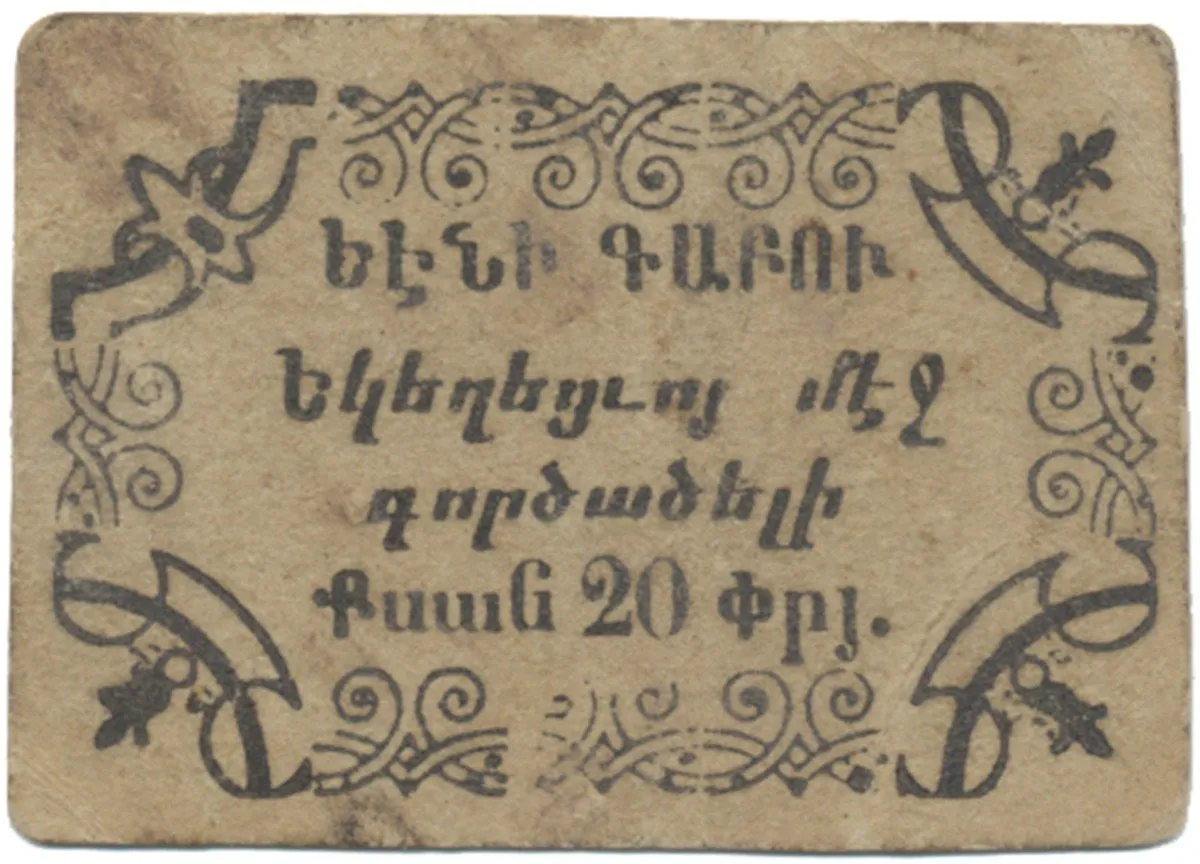 ԵԷՆԻ ԳԱԲՈՒ
Եկեղեցւոյ մէջ
գործածելի
Քսան 20 Փրյ.